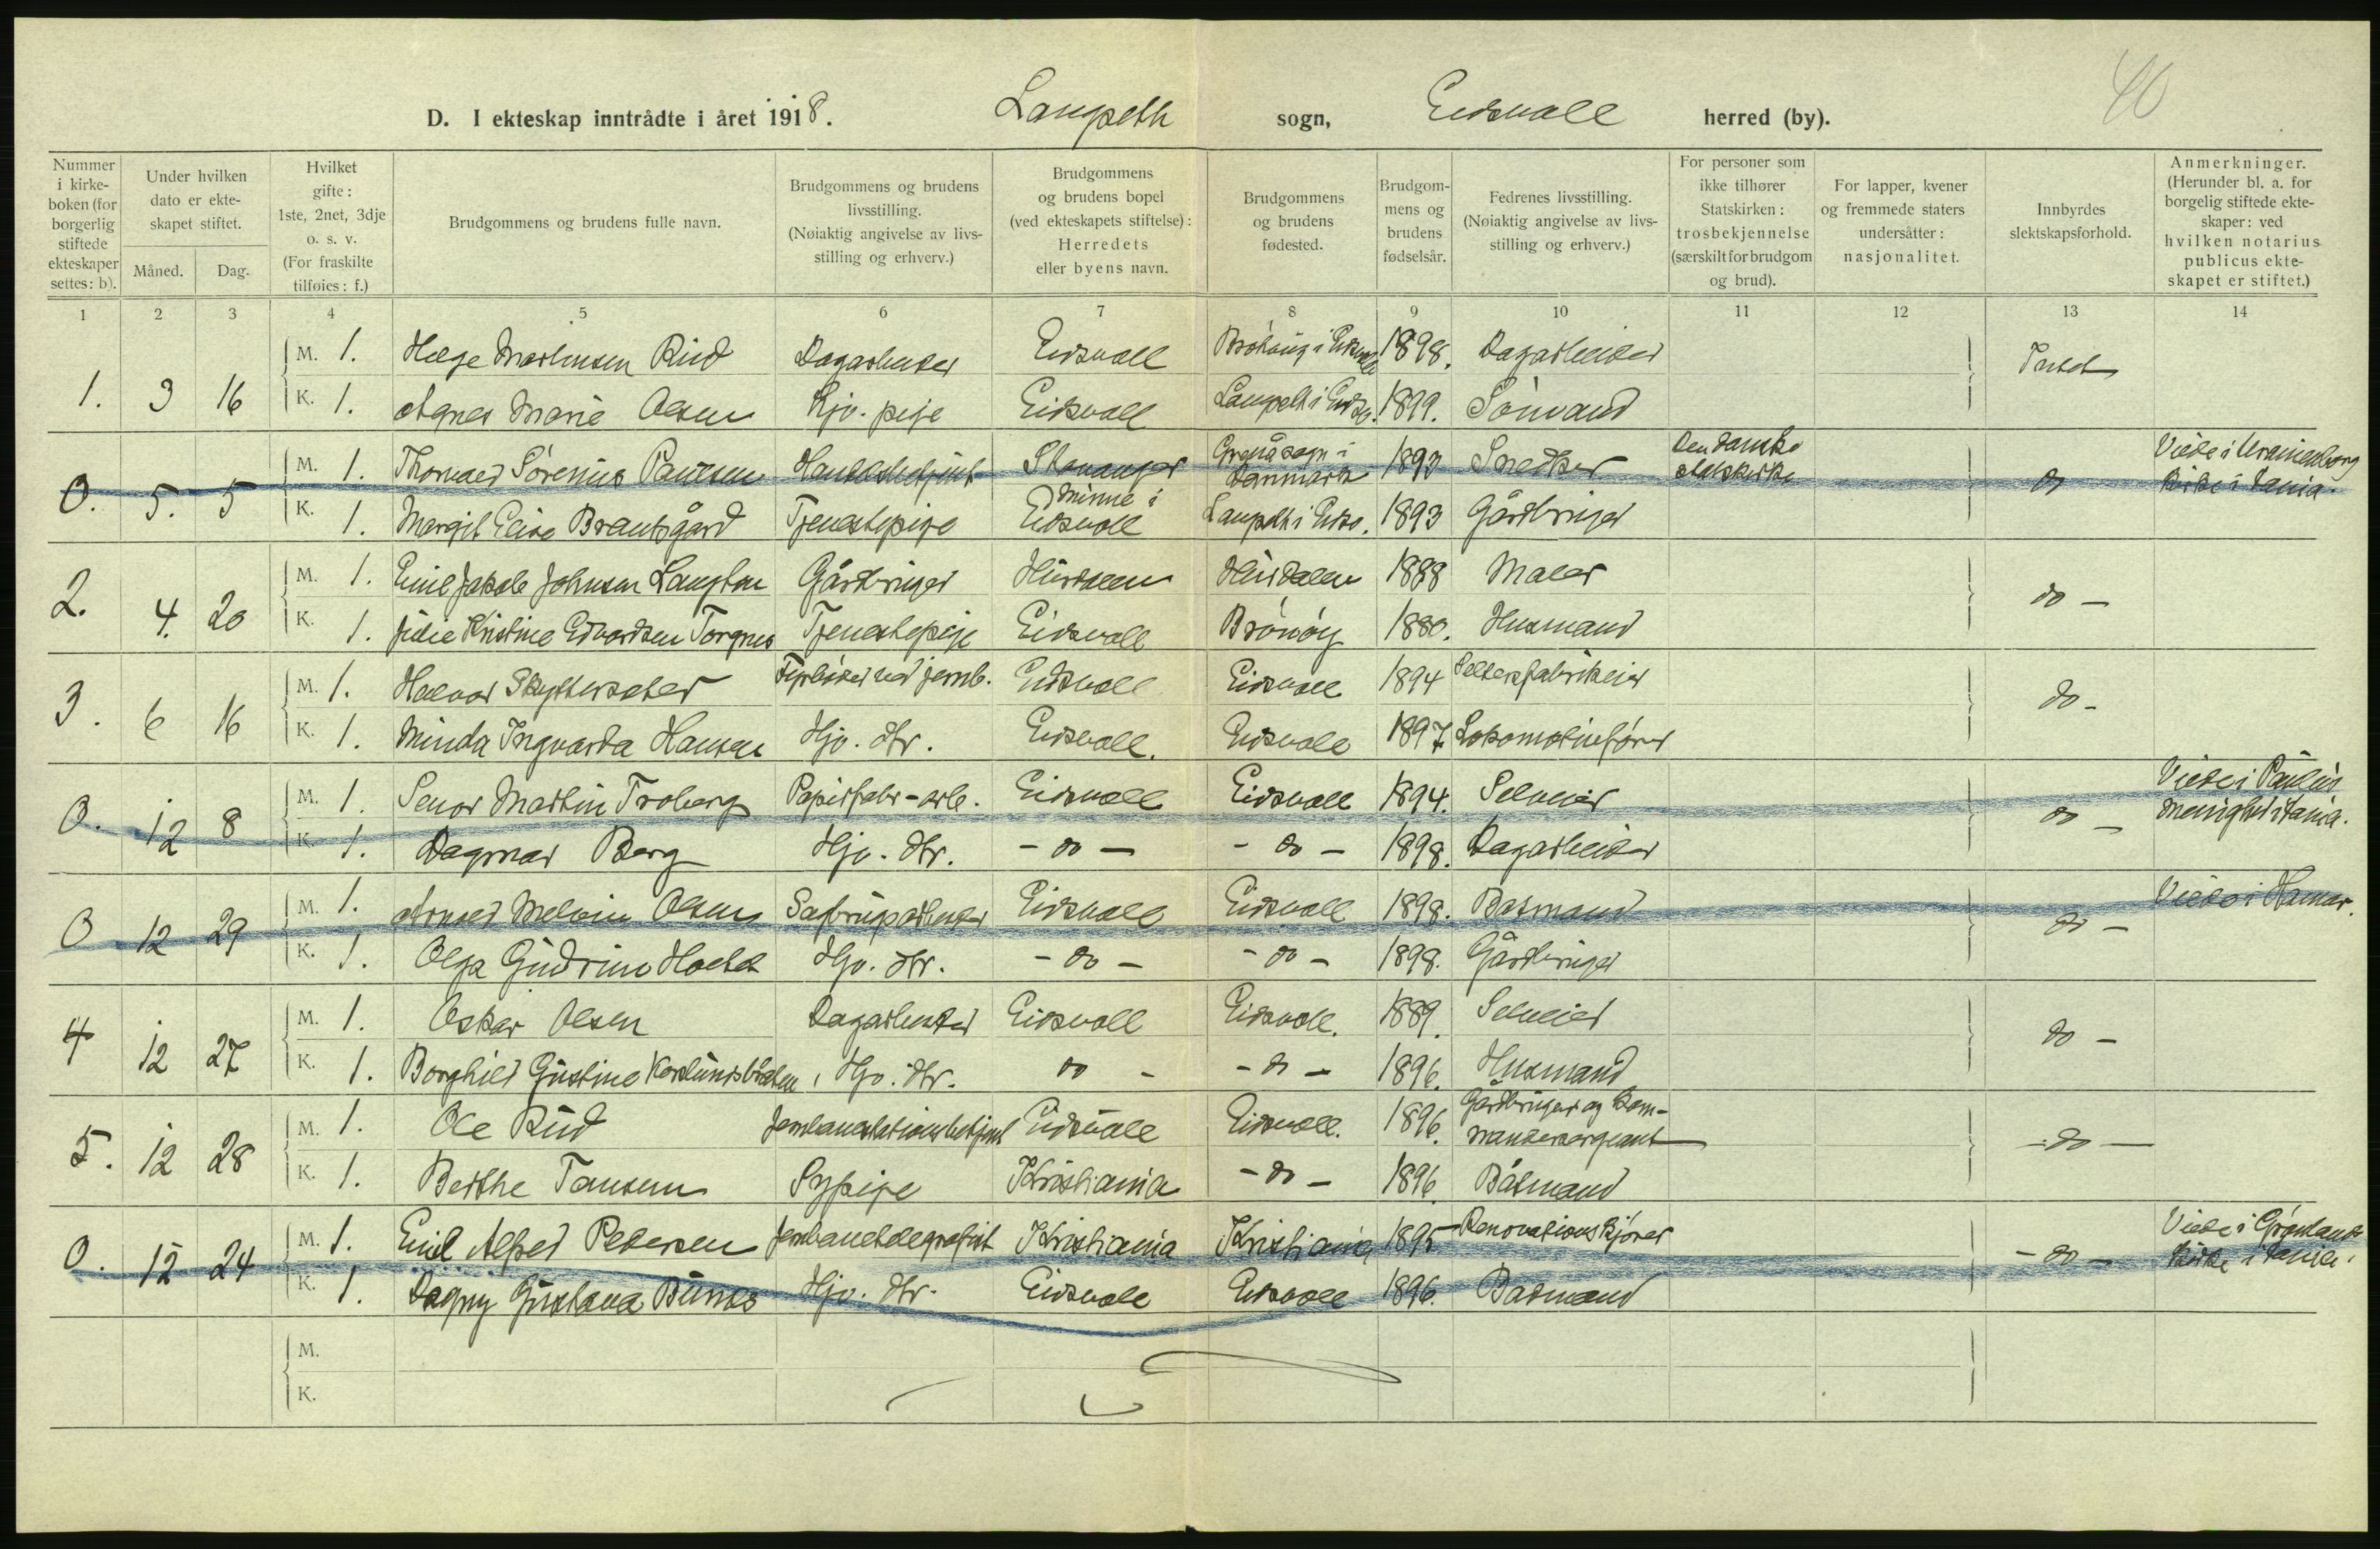 40
D. I ekteskap inntrådte i året 1918. Langseth sogn, Eidsvoll herred (by).
Nummer i kirkeboken (for borgerlig stiftede ekteskaper settes: b).
Under hvilken dato er ekteskapet stiftet.
Måned.
Dag.
Hvilket gifte: 1ste, 2net, 3dje o. s. v. (For fraskilte tilføies: f.)
Brudgommens og brudens fulle navn.
Brudgommens og brudens livsstilling. (Nøiaktig angivelse av livsstilling og erhverv.)
Brudgommens og brudens bopel (ved ekteskapets stiftelse): Herredets eller byens navn.
Brudgommens og brudens fødested.
Brudgommens og brudens fødselsår.
Fedrenes livsstilling. (Nøiaktig angivelse av livsstilling og erhverv.)
For personer som ikke tilhører Statskirken: trosbekjennelse (særskilt for brudgom og brud).
For lapper, kvener og fremmede staters undersåtter: nasjonalitet.
Innbyrdes slektskapsforhold.
Anmerkninger. (Herunder bl. a. for borgelig stiftede ekteskaper: ved hvilken notarius publicus ekteskapet er stiftet.)
1 2 3 4 5 6 7 8 9 10 11 12 13 14
1. 3 16
M. 1. Helge Martinsen Rud Dagarbeider Eidsvoll 1898. Dagarbeider Intet
K. 1. Agnes Marie Olsen Hjv. pige Eidsvoll Langseth i Eidsv. 1899.
0. 5. 5
M. 1. Thorvald Sørenius Paulsen Handelsbetjent Stavanger Grenå sogn i Danmark 1893 Snedker Den danske statskirke do Viede i Uranienborg kirke i Kania.
K. 1. Margit Elise Brautsgård Tjenestepige Minne i Eidsvoll Langseth i Eidsv. 1893 Gårdbruger
2. 4. 20
M. 1. Emil Jakob Johnsen Langton Gårdbruger Hurdalen Hurdalen 1888 Maler do -
K. 1. Julie Kristine Edvardsen Torgnes Tjenestepige Eidsvoll Brönöy 1880. Husmand
3. 6 16
M. 1. Halvor Skyttersæter Fyrbøder ved jernb. Eidsvoll Eidsvoll 1894 Seltersfabrikeier do -
K. 1. Minda Ingvarda Hansen Hjv. dtr. Eidsvoll. Eidsvoll 1897. Lokomotivfører
0. 12 8
M. 1. Senor Martin Troberg Papirfabr-arb. Eidsvoll Eidsvoll 1894. Selveier do - Viede i Paulus menighet i Kania.
K. 1. Dagmar Berg Hjv. dtr. - do - - do - 1898. Dagarbeider
0 12 29
M. 1. Arnold Melvin Olsen Sagbrugsarbeider Eidsvoll Eidsvoll 1898. Båtmand do - Viede i Hamar.
K. 1. Olga Gudrun Holst Hjv. dtr. - do - - do - 1898. Gårdbruger
4 12 27
M. 1. Oskar Olsen Dagarbeider Eidsvoll Eidsvoll. 1889. Selveier do -
K. 1. Borghild Gustine Karlundsbråten, Hjv. dtr. do - - do - 1896. Husmand
5. 12 28
M. 1. Ole Rud Jernbanestationsbetjent Eidsvoll Eidsvoll. 1896. Gårdbruger og Kommandersergeant - do -
K. 1. Berthe Tansem Sypige Kristiania - do - 1896. Båtmand
0. 12 24
M. 1. Emil Alfred Petersen Jernbanetelegrafist Kristiania Kristiania 1895 Renovationskjører - do - Viede i Grønlands kirke i Kania.
K. 1. Dagny Gustava Bunes Hjv. dtr. Eidsvoll Eidsvoll 1896. Båtmand
M.
K.